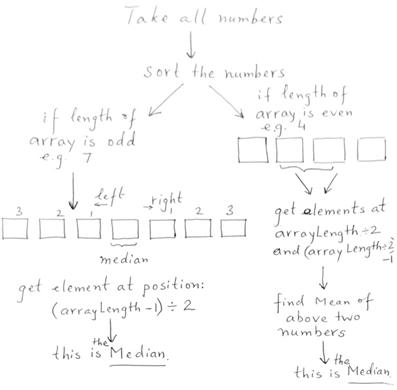 Take all numbers
Sort the numbers
if length of
array is odd
e.g. 7
if length of
array is even
e.g. 4
left
right
3 2 1 1 2 3
median
get element at position:
(arrayLength -1) ÷ 2
this is the Median.
get elements at
arrayLength ÷ 2
and (arrayLength ÷ 2
-1
find Mean of
above two
numbers
this is the Median